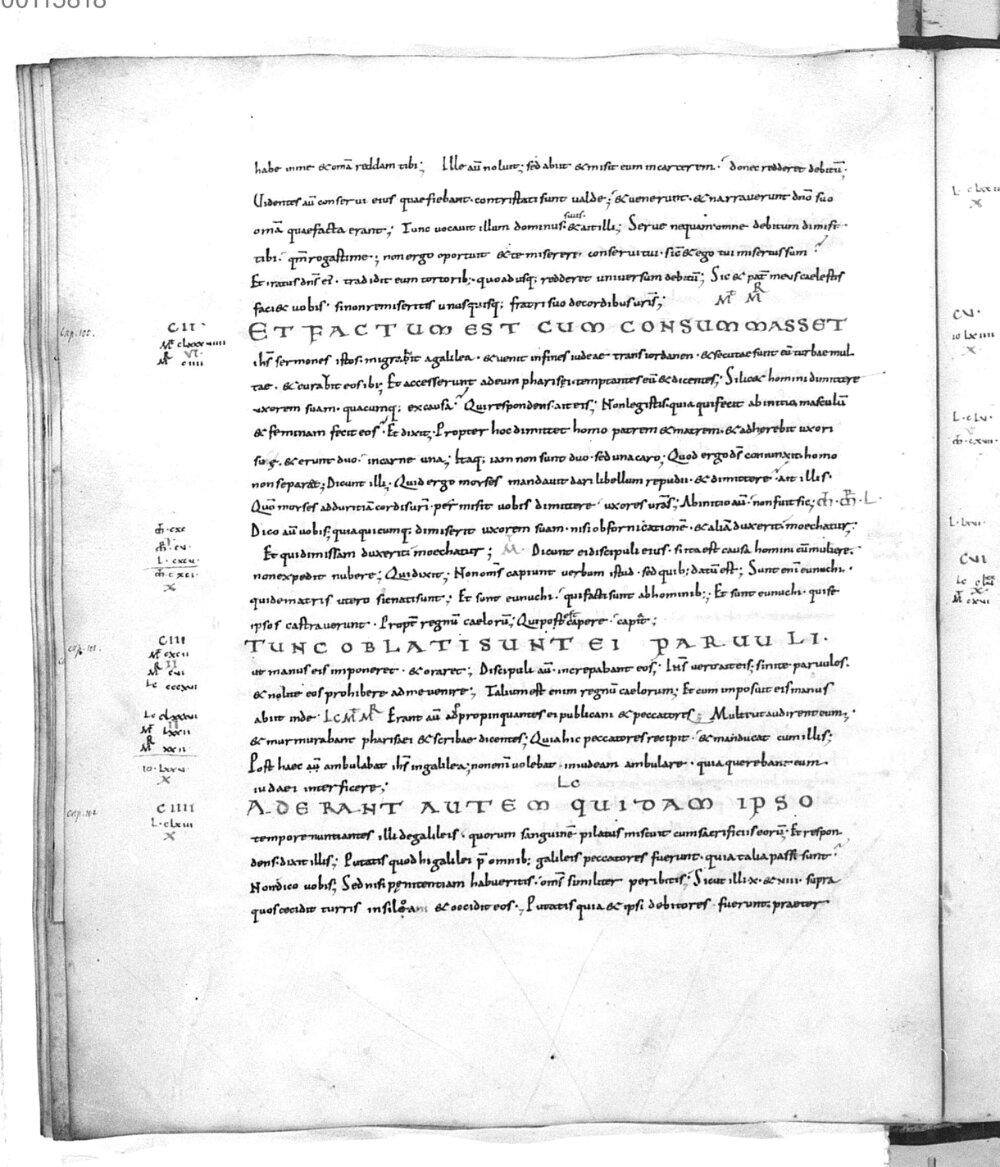 00115818
habe inme & omā reddam tibi; Ille aū noluit; sed abiit & misit eum incarcerem. donec redderet debitū;
Uidentes aū conserui eius quae fiebant. contristati sunt ualde; & uenerunt. & narrauerunt dn̄o suo
omā quae facta erant; Tunc uocauit illum dominus suus. & ait illi; Serue nequam omne debitum dimisi
tibi. qm̄ rogastime; non ergo oportuit & te misereri conseruitui. sic̄ & ego tui misertus sum
Et iratus dn̄s ei'. tradidit eum tortorib; quo adusq; redderet uniuersum debitū; Sic & pat̄ meus caelestis
faci& uobis. sinon remiseritis unusquisq; fratri suo decordibus ur̄is; Mt Mr
cap. 100. CII. ET FACTUM EST CUM CONSUMMASSET
Mt clxxxuiiii
Mr ciiii
ihs̄ sermones istos. migrabit agalilea. & uenit infines iudeae trans iordanen. & secutae sunt eū turbae mul
tae. & curabit eos ibi; Et accesserunt adeum pharisei. temptantes eū & dicentes; Si lic& homini dimittere
uxorem suam. quacumq; excausa. Qui respondens ait eis; Non legistis. quia qui fecit abinitio masculū
& feminam fecit eos. Et dixit; Propter hoc dimittet homo patrem & matrem. & adherebit uxori
suȩ. & erunt duo. incarne una; Itaq; iam non sunt duo. sed una caro; Quod ergo ds̄ coniunxit. homo
non separet; Dicunt illi; Quid ergo moyses mandauit dari libellum repudii. & dimittere. ait illis.
Quō moyses adduritiā cordis ur̄i. permisit uobis dimittere uxores uras̄; Abinitio aū. non fuit sic;
Dico aū uobis; quia quicumq; dimiserit uxorem suam. nisi obfornicationē. & aliā duxerit. moechatur;
Et qui dimissam duxerit. moechatur; M. Dicunt ei discipuli eius. si ita est causa homini cū muliere.
L. cxcu
non expedit nubere; Qui dixit; Non oms̄ capiunt uerbum istud. sed quib; datū est; Sunt enī eunuchi.
X
qui dematris utero sic nati sunt; Et sunt eunuchi. qui facti sunt abhominib; Et sunt eunuchi. qui se
ipsos castrauerunt. Propt̄ regnū caelorū; Qui potest capere. capit;
cap. 101. CIII TUNC OBLATI SUNT EI PARUULI.
Mt cxcii
Mr cui
Lc ccxui
ut manus eis imponeret. & oraret; Discipuli aū. increpabant eos; Ihs̄ uero ait eis; sinite paruulos.
& nolite eos prohibere adme uenire; Talium est enim regnū caelorum; Et cum imposuit eis manus
Lc clxxxui
Mt lxxii
Mr xxii
abiit inde. Lc Mt Mr Erant aū adpropinquantes ei publicani & peccatores; Multi ut audirent eum;
& murmurabant pharisaei & scribae dicentes; Quia hic peccatores recipit. & manducat cum illis;
Post haec aū ambulabat ihs̄ ingalilea; non enī uolebat. iniudeam ambulare. quia querebant eum
X
iudaei interficere; Lc
cap. 102 CIIII ADERANT AUTEM QUIDAM IPSO
L. clxiii
X
tempore nuntiantes illi degalileis. quorum sanguinē pilatus miscuit cum sacrificiis eorū; Et respon
dens. dixit illis; Putatis quod hi galilei p̄ omnib; galileis peccatores fuerunt. quia talia passi sunt
Non dico uobis; Sed nisi pȩnitentiam habueritis. oms̄ similiter peribitis; Sicut illi x. & uiii. supra
quos cecidit turris insiloam & occidit eos. Putatis quia & ipsi debitores fuerunt; praeter
CU.
X
CUI